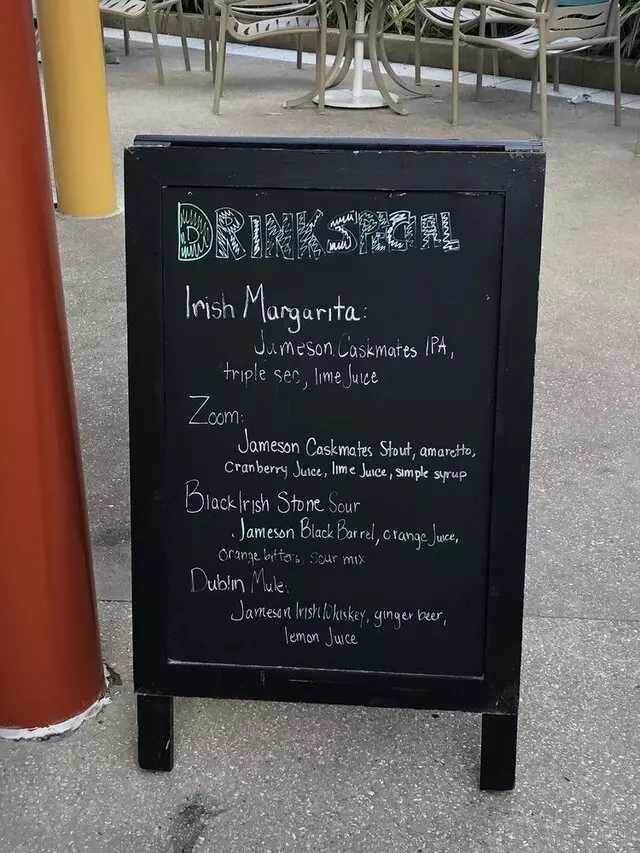 DRINK SPECIAL
Irish Margarita:
Jameson Caskmates IPA,
triple sec, lime Juice
Zoom:
Jameson Caskmates Stout, amaretto,
Cranberry Juice, lime Juice, simple syrup
Black Irish Stone Sour
Jameson Black Barrel, orange Juice,
Orange bitters, sour mix
Dublin Mule:
Jameson Irish Whiskey, ginger beer,
lemon Juice